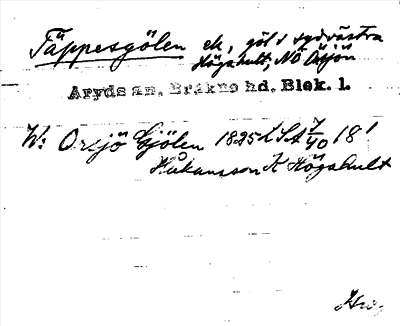 Täppesgölen ek, göl i sydvästra
Högahult, NÖ Orsjön
Aryds sn. Bräkne hd. Blek. l.
W: Orsjö Gjölen 1825 L St 7/40 18'
Håkansson K Högahult